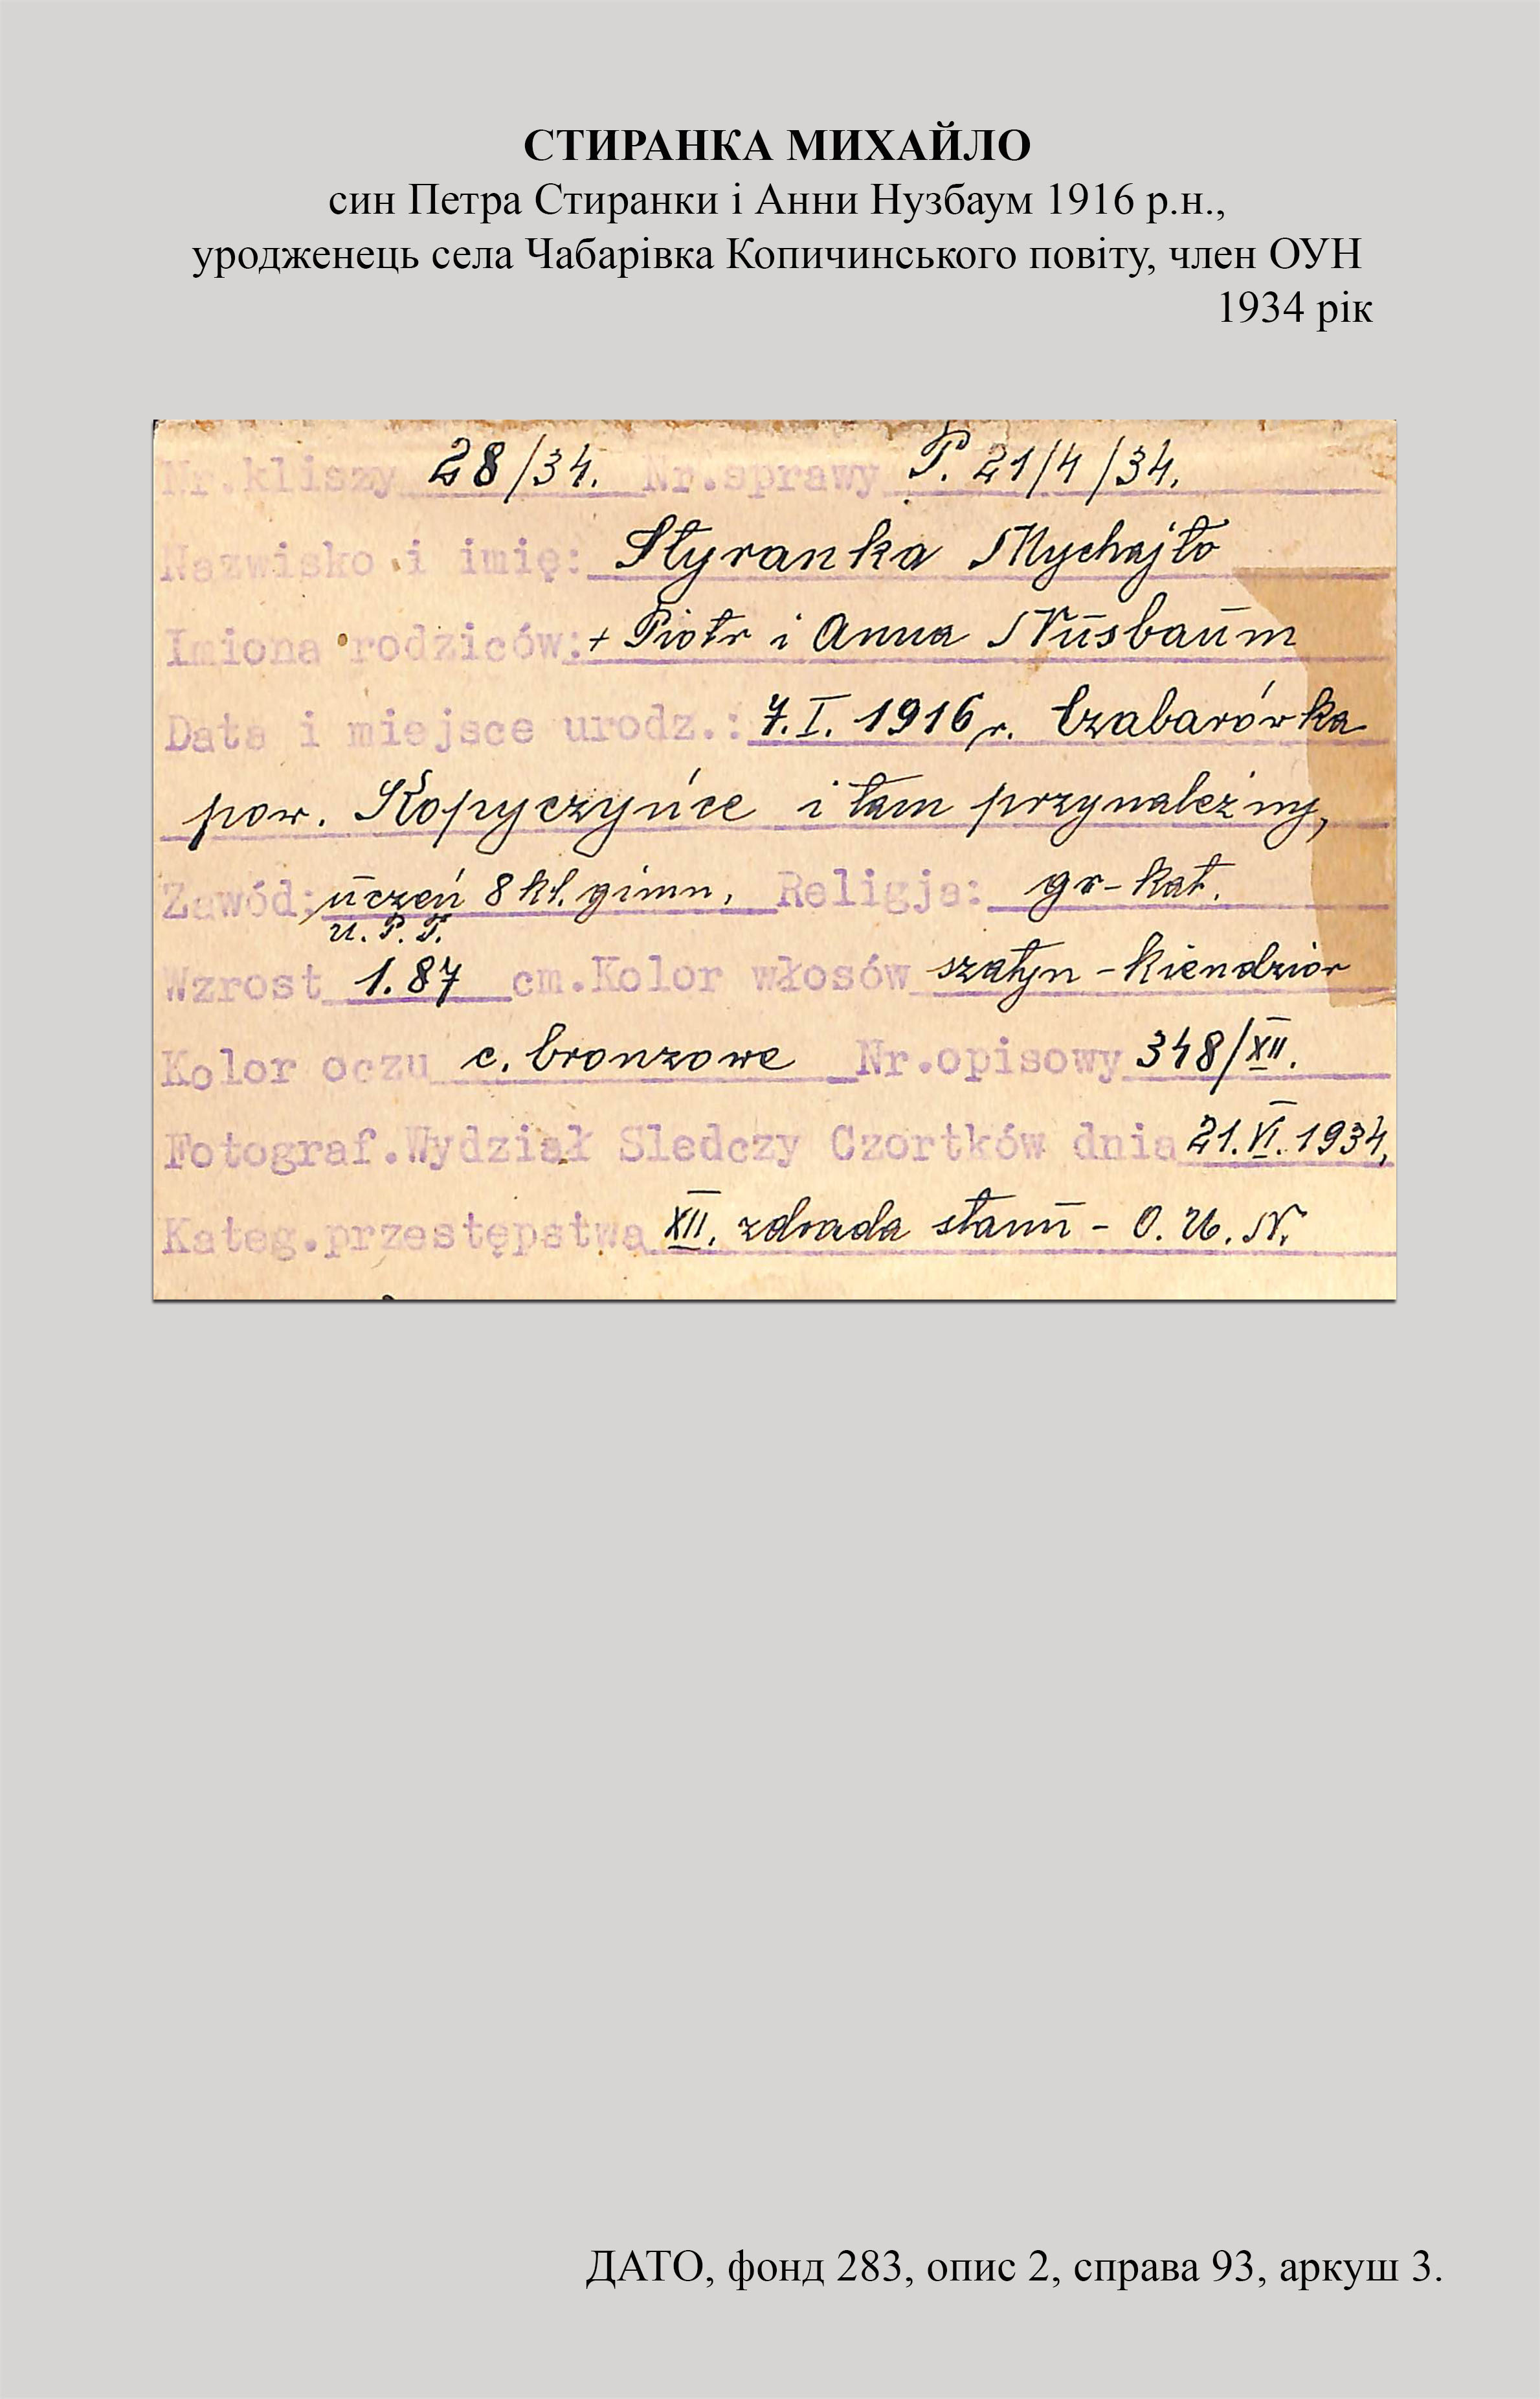 СТИРАНКА МИХАЙЛО
син Петра Стиранки і Анни Нузбаум 1916 р.н.,
уродженець села Чабарівка Копичинського повіту, член ОУН
1934 рік
Nr.kliszy 28/34. Nr.sprawy P. 21/4/34.
Nazwisko i imię: Styranka Mychajło
Imiona rodziców: + Piotr i Anna Nusbaum
Data i miejsce urodz.: 7.I.1916 r. Czabarówka
pow. Kopyczyńce i tam przynależny,
Zawód: uczeń 8 kl. gimn. Religja: gr-kat.
U. P. T.
Wzrost 1.87 cm. Kolor włosów szatyn - kiendzior
Kolor oczu c. bronzowe Nr.opisowy 348/XII.
Fotograf.Wydział Sledczy Czortków dnia 21.VI.1934.
Kateg.przestępstwa XII. zdrada stanu - O. U. N.
ДАТО, фонд 283, опис 2, справа 93, аркуш 3.